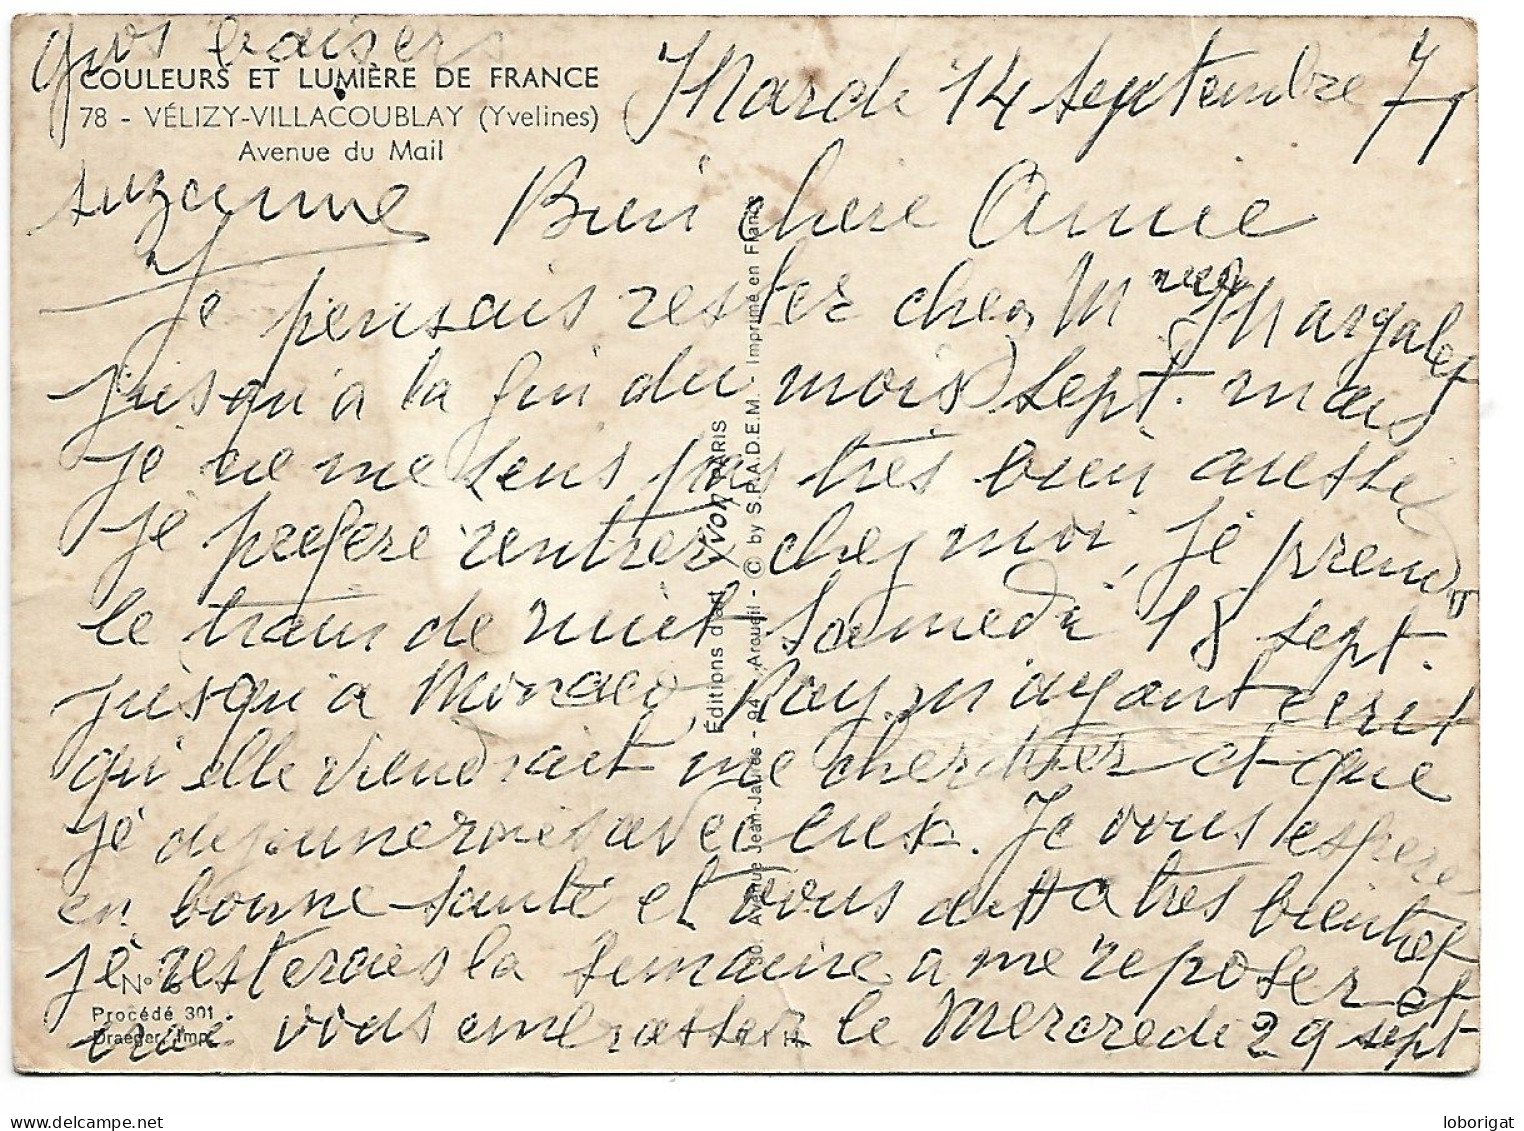 gros baisers
COULEURS ET LUMIÈRE DE FRANCE
78 - VÉLIZY-VILLACOUBLAY (Yvelines)
Avenue du Mail
suzanne
Mardi 14 septembre 71
Bien chère Amie
Je pensais rester chez Mme Margalet
jusqu'a la fin du mois sept. mais
je ne me sens pas très bien aussi
je prefere rentrer chez moi, je prends
le train de nuit Samedi 18 sept.
jusqu'a Monaco, Ray m'ayant ecrit
qu'elle viendrait me chercher et que
je dejeunerais avec eux. Je vous espere
en bonne santé et vous dit a tres bientot
je resterais la semaine a me reposer et
vous embrasser le Mercredi 29 sept
N° 6
Procédé 301
Draeger, Imp.
Éditions d'art Yvon PARIS
30, Avenue Jean-Jaurès - 94 - Arcueil - © by S.P.A.D.E.M. Imprimé en France
loborigat